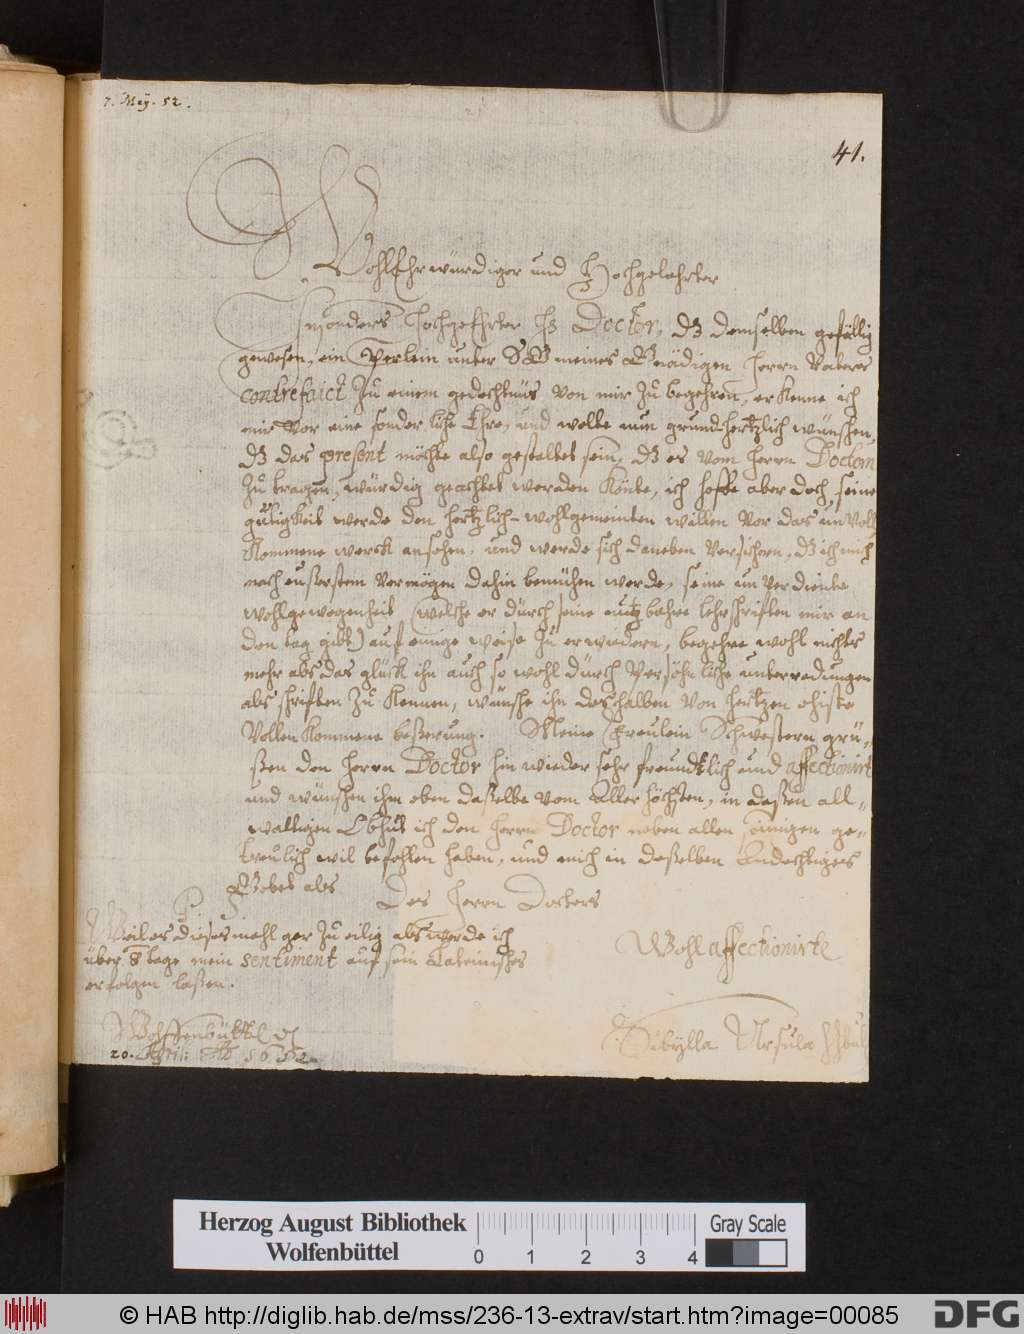 7. Maÿ. 52.
41.
WohlEhrwürdiger und Hochgelahrter
Insonders Hochgeehrter H. Doctor, dz demselben gefällig
gewesen, ein Perlein unter meines Gnädigen Herrn Vaters
contrefaict zu einem gedechtnüs von mir zu begehren, erkenne ich
mir vor eine sonderliche Ehre, und wolte nun grundhertzlich wünschen,
dz das present möchte also gestaltet sein, dz es vom Herrn Doctorn
zu tragen, würdig geachtet werden könte, ich hoffe aber doch, seine
gütigkeit werde den hertzlich-wohlgemeinten willen vor das unvoll
kommene werck ansehen, und werde sich daneben versichern, dz ich mich
nach eußerstem vermögen dahin bemühen werde, seine unverdiente
wohlgewogenheit (welche er durch seine nutzbahre lehrschriften mir an
den tag gibt) auf einige weise zu erwiedern, begehre wohl nichts
mehr als das glück ihn auch so wohl durch persöhnliche unterredungen
als schriften zu kennen, wünsche ihn deshalben von hertzen
vollenkommene beßerung. Meine Freulein Schwestern grü-
ßen den Herrn Doctor hinwieder sehr freundtlich und affectionirt
und wünschen ihm eben daßelbe vom Aller höchsten, in deßen all-
waltigen Obhut ich den Herrn Doctor neben allen seinigen ge-
treulich wil befohlen haben, und mich in deßelben Andechtiges
Gebet als
Des Herrn Doctors
Wohl affectionirte
Sibylla Ursula
P S
Weil es diesesmahl gar zu eilig als werde ich
über 8 tage mein sentiment auf sein Lateinisches
erfolgen laßen.
Wolffenbüttel d
20. April: Ao 1652.
Herzog August Bibliothek
Wolfenbüttel
0 1 2 3 4
Gray Scale
© HAB http://diglib.hab.de/mss/236-13-extrav/start.htm?image=00085
DFG